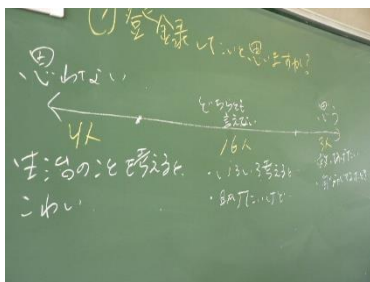 ① 登録したいと思いますか?
思わない
どちらとも
言えない
思う
4人
16人
3人
生活のことを考えると
こわい
・いろいろ考えると